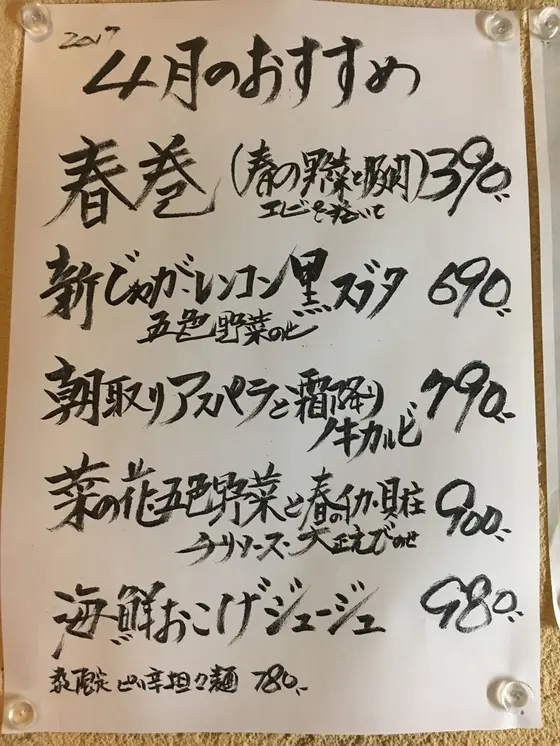 2017
4月のおすすめ
春巻 (春の野菜と豚肉) 390.-
エビを巻いて
新じゃが・レンコン黒スブタ 690.-
五色野菜の
朝取りアスパラと霜降り 790.-
牛カルビ
菜の花・五色野菜と春のイカ・貝柱 900.-
チリソース・大正えびのせ
海鮮おこげジュージュ 980.-
限定 ピリ辛担々麺 780.-